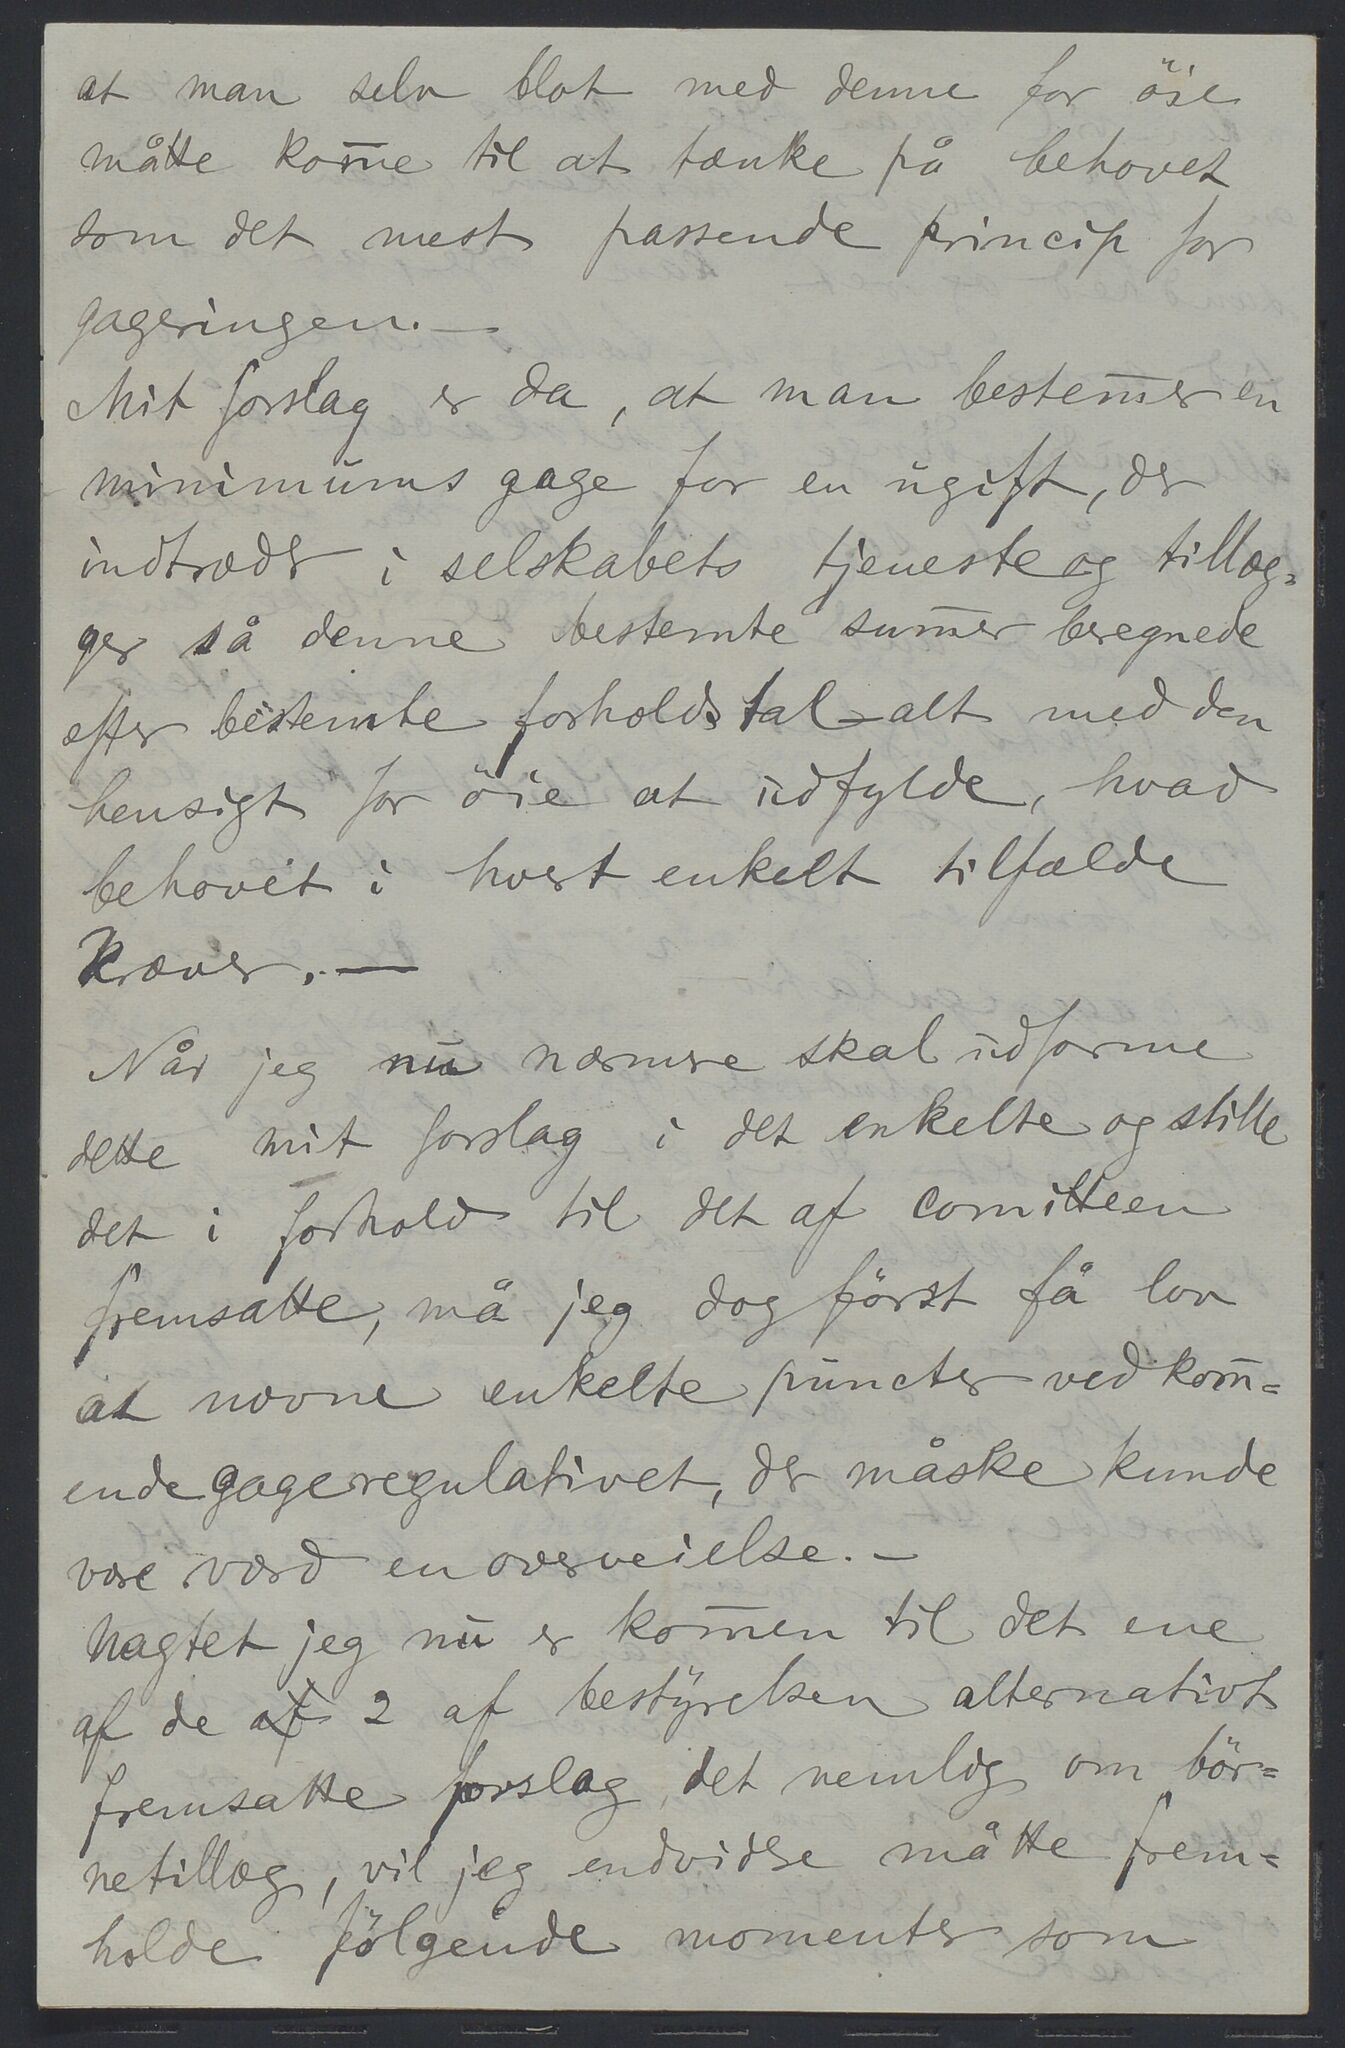 at man selv blot med denne for öie
måtte kom̄e til at tænke på behovet
som det mest passende princip for
gageringen. —
Mit forslag er da, at man bestem̄er en
minimums gage for en ugift, der
indtræder i selskabets tjeneste og tillæg=
ger så denne bestemte sum̄er beregnede
efter bestemte forholdstal – alt med den
hensigt for öie at udfylde, hvad
behovet i hvert enkelt tilfælde
kræver. —
Når jeg nu nærmere skal udforme
dette mit forslag i det enkelte og stille
det i forhold til det af comitteen
fremsatte, må jeg dog först få lov
at nævne enkelte puncter vedkom̄=
ende gageregulativet, der måske kunde
være værd en overveielse. –
Uagtet jeg nu er kom̄en til det ene
af de af 2 af bestyrelsen alternativt
fremsatte forslag, det nemlig om bör=
netillæg, vil jeg endvidere måtte frem=
holde fölgende momenter som